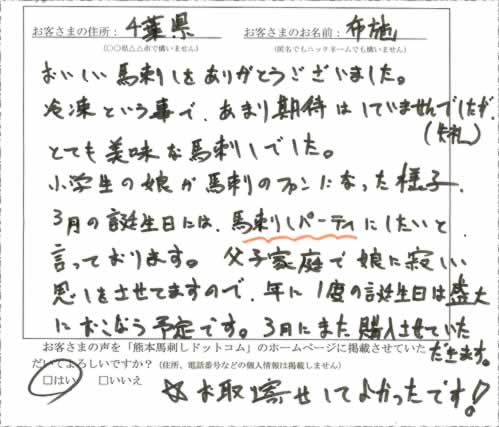 お客さまの住所： 千葉県 お客さまのお名前： 布施
(○○県△△市で構いません) (匿名でもニックネームでも構いません)
おいしい馬刺しをありがとうございました。
冷凍という事で、あまり期待はしていませんでしたが、
(失礼)
とても美味な馬刺しでした。
小学生の娘が馬刺のファンになった様子、
3月の誕生日には、馬刺しパーティにしたいと
言っております。父子家庭で娘に寂しい
思いをさせてますので、年に1度の誕生日は盛大
におこなう予定です。3月にまた購入させていた
だきます。
お客さまの声を「熊本馬刺しドットコム」のホームページに掲載させていた
だいてよろしいですか？（住所、電話番号などの個人情報は掲載しません）
□はい □いいえ
☆お取寄せしてよかったです!